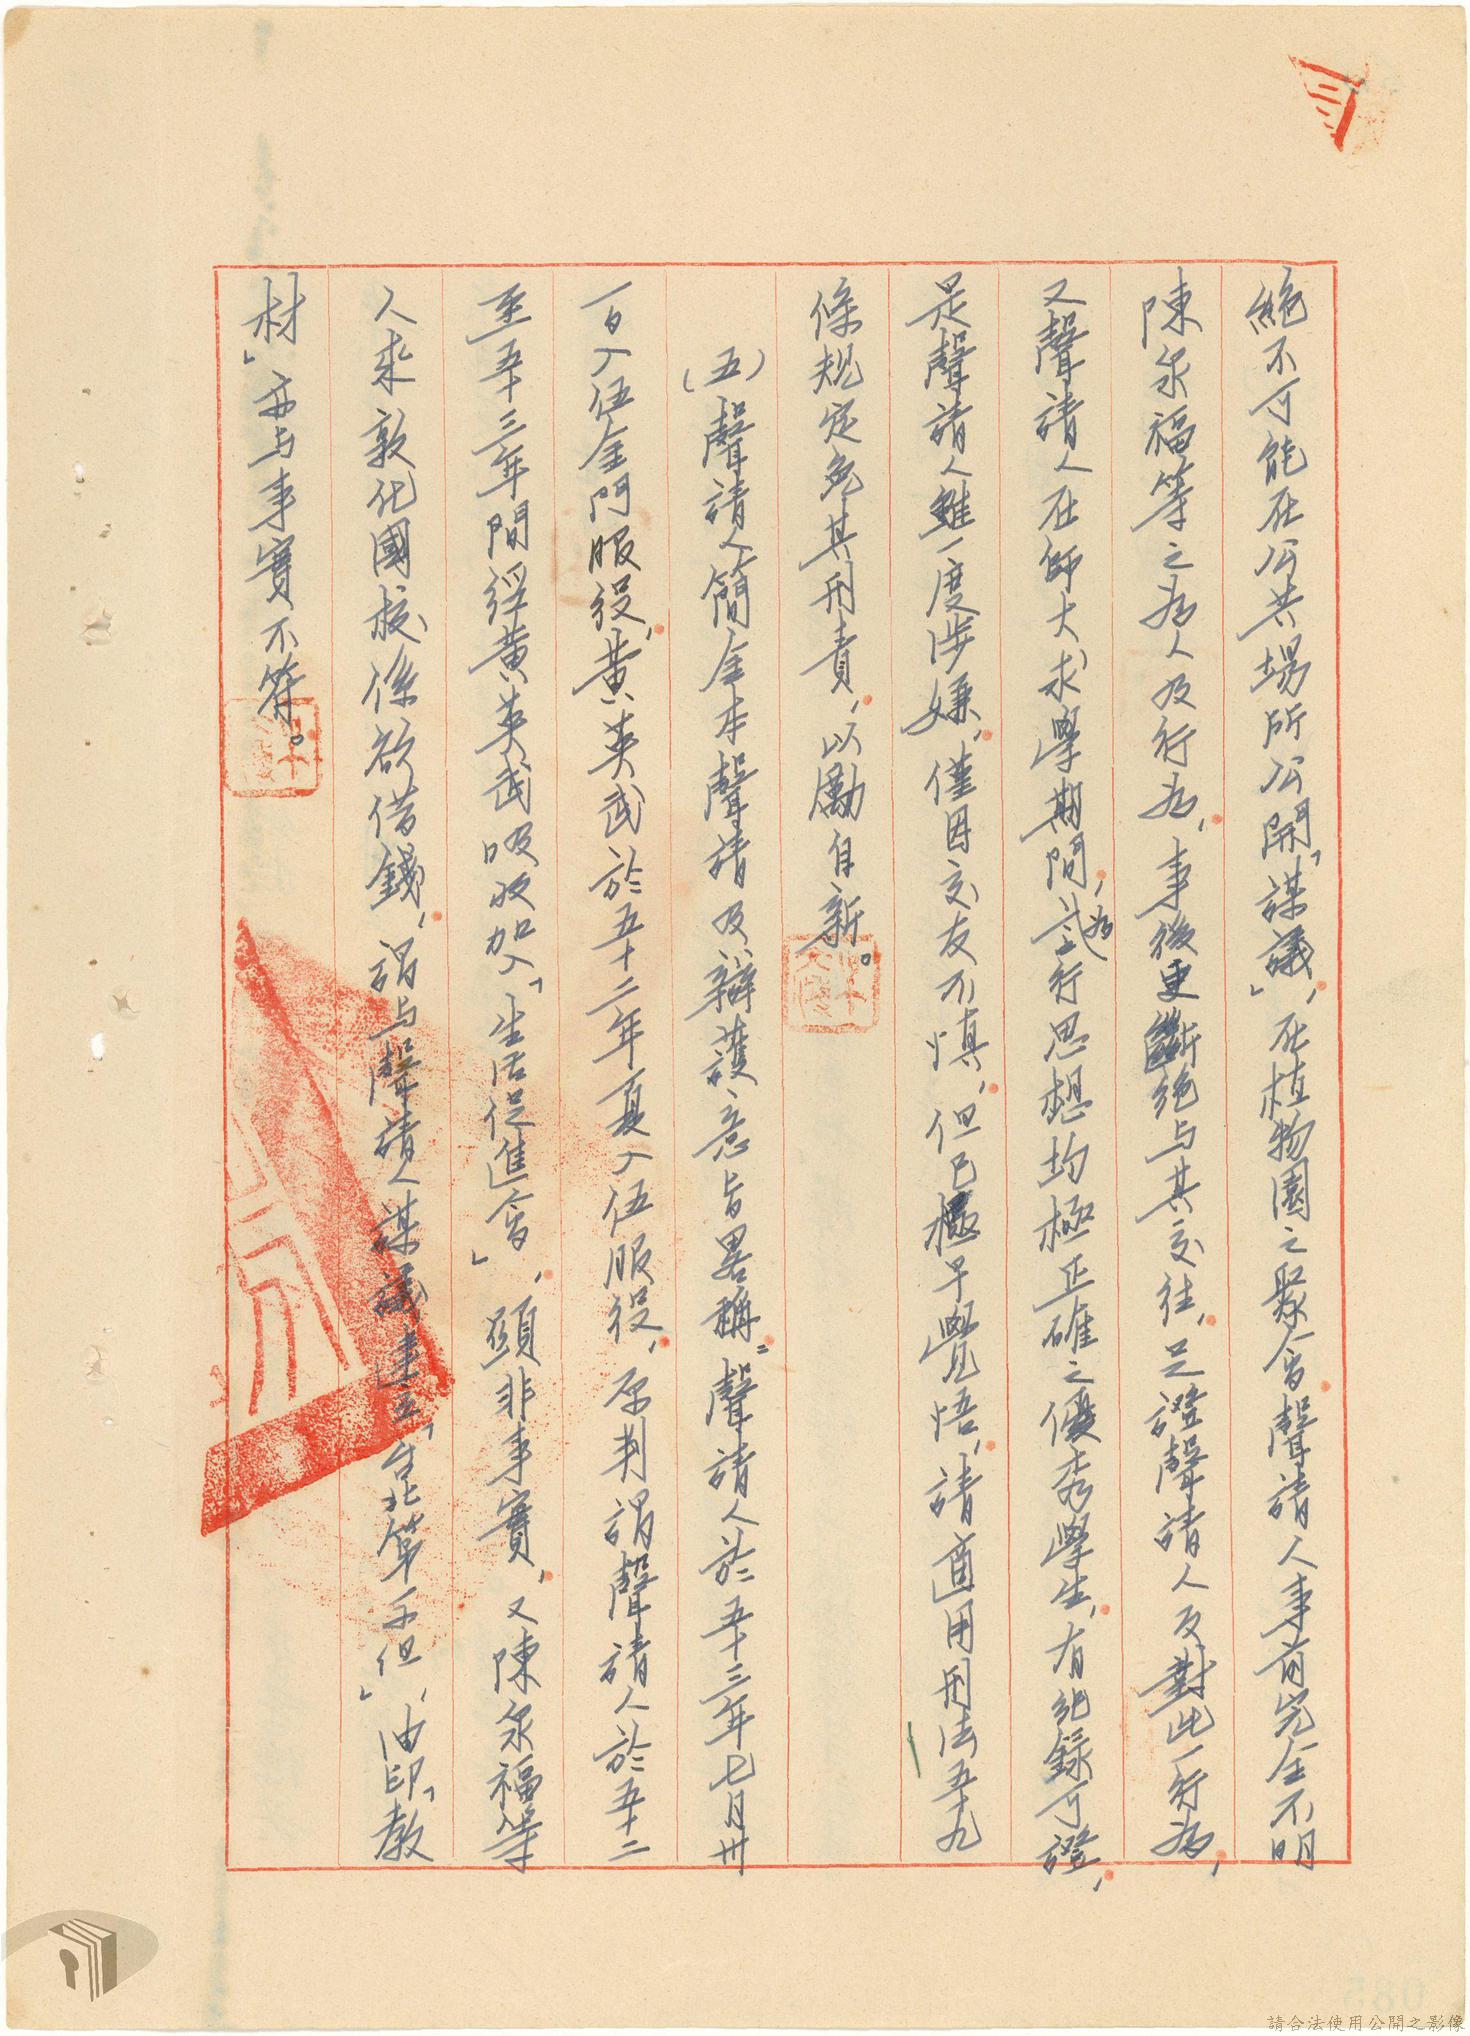 絕不可能在公共場所公開「謀議」，在植物園之聚會聲請人事前完全不明
陳永福等之為人及行為，事後更斷絕與其交往，足證聲請人反對此一行為，
又聲請人在師大求學期間，為行思想均極正確之優秀學生，有紀錄可證，
是聲請人雖一度涉嫌，僅因交友不慎，但已極早覺悟，請適用刑法五十九
條規定免其刑責，以勵自新。
（五）聲請人簡金本聲請及辯護意旨畧稱：聲請人於五十三年七月卅
一日入伍金門服役，黃英武於五十二年夏入伍服役，原判謂聲請人於五十二
至五十三年間經黃英武吸收加入「生活促進會」，顯非事實，又陳永福等
人來敦化國校係欲借錢，謂与聲請人謀議建立「台北第一不但」，油印「教
材」亦与事實不符。
請合法使用公開之影像